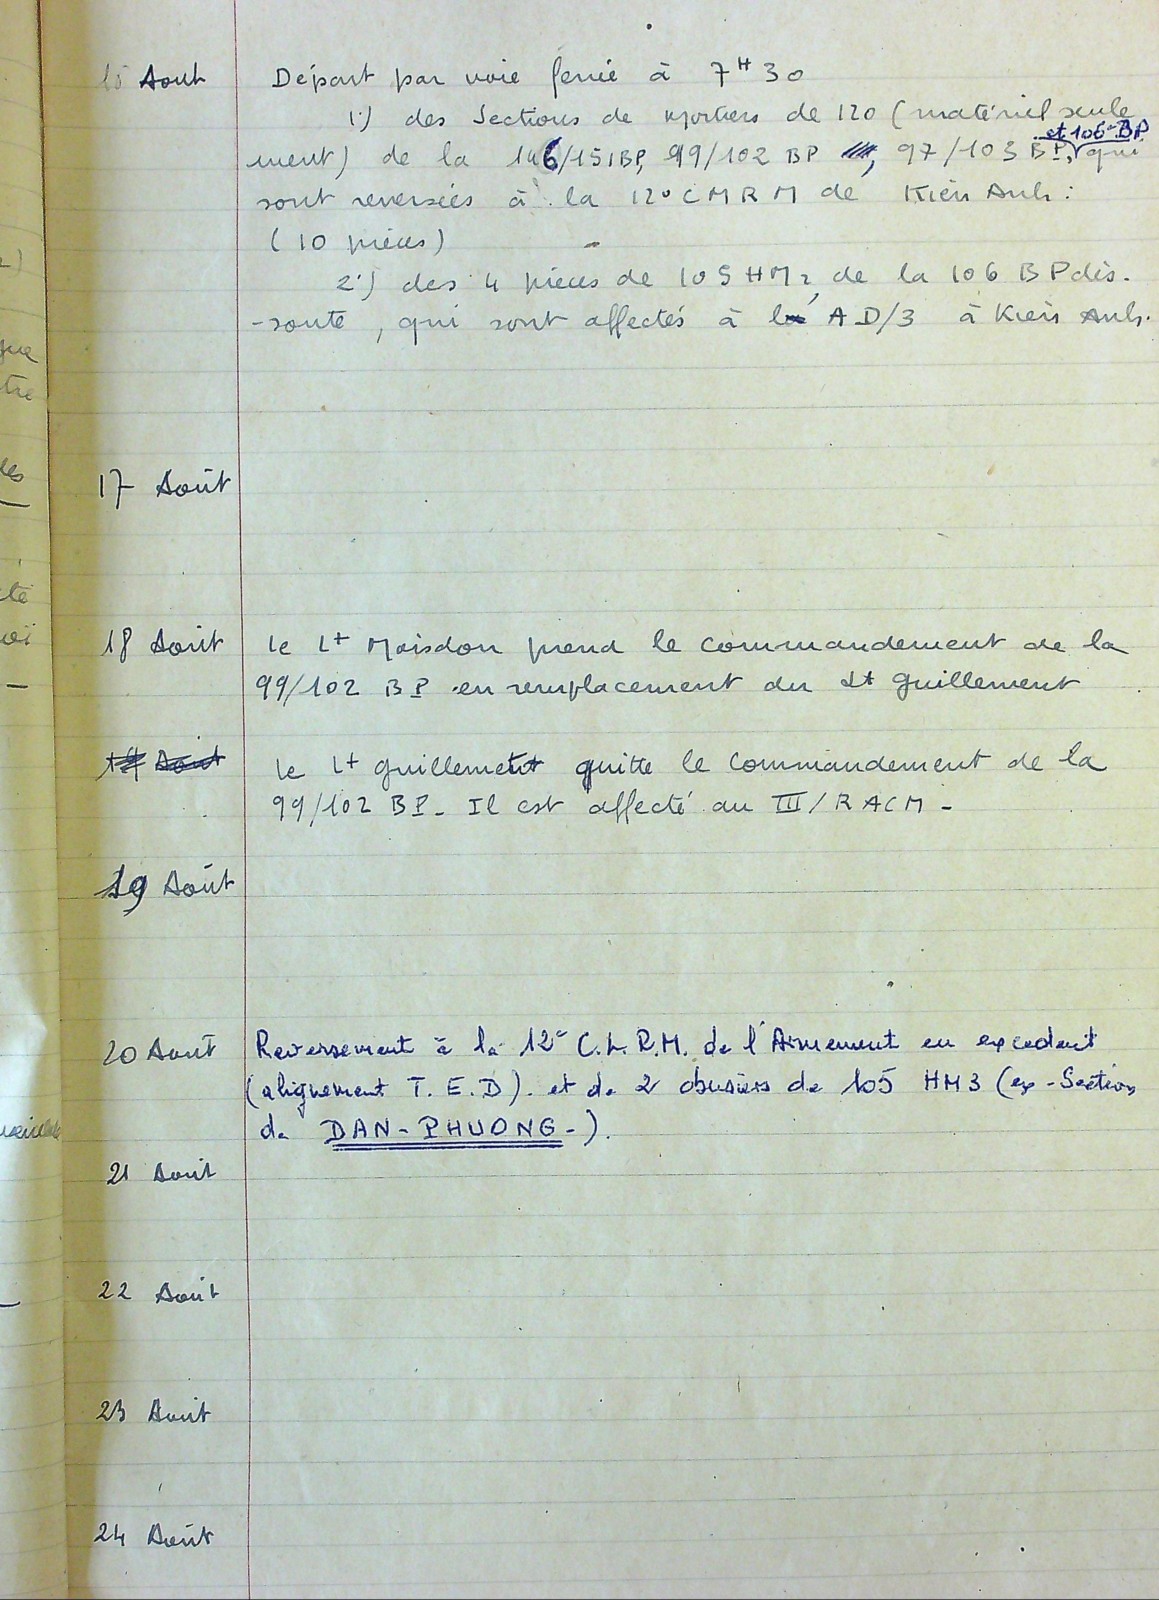 15 Aout Départ par voie ferrée à 7H30
1°) des Sections de mortiers de 120 (matériel seule
ment) de la 146/151BP, 99/102 BP, 97/103 BP, et 106° BP qui
sont reversées à la 12° CMRM de Kien Anh :
(10 pièces)
2°) des 4 pièces de 105 HM2, de la 106 BP dis-
-soute, qui sont affectés à la AD/3 à Kien Anh.
17 Août
18 Août Le Lt Moisdon prend le commandement de la
99/102 BP en remplacement du Lt Guillement
19 Août Le Lt Guillement quitte le commandement de la
99/102 BP. Il est affecté au III/RACM -
19 Août
20 Août Reversement à la 12e C.L.R.M. de l'Armement en excedent
(alignement T.E.D). et de 2 obusiers de 105 HM3 (ex-Section
de DAN-PHUONG-).
21 Août
22 Août
23 Août
24 Août